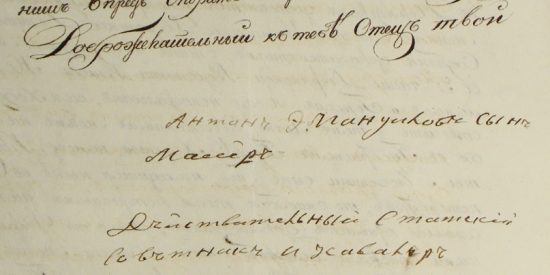 нишъ впредь
Доброжелательный къ тебѣ Отецъ твой
Антонъ Эммануиловъ Сынъ
Массеръ
Дѣйствительный Статскій
Совѣтникъ и Кавалеръ